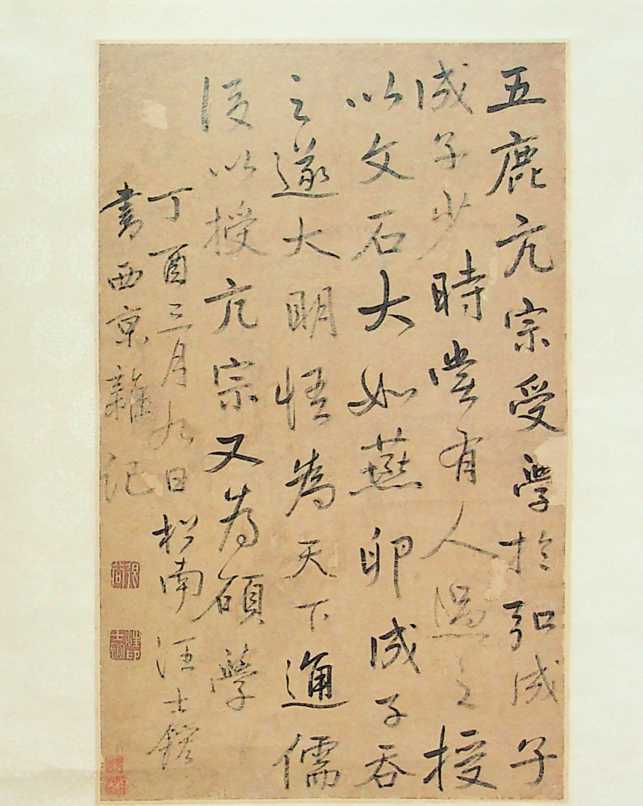 五鹿亢宗受學於弘成子
成子少時嘗有人過之授
以文石大如燕卵成子吞
之遂大明悟為天下通儒
後以授亢宗又為碩學
丁酉三月九日松南汪士鋐
書西京雜記